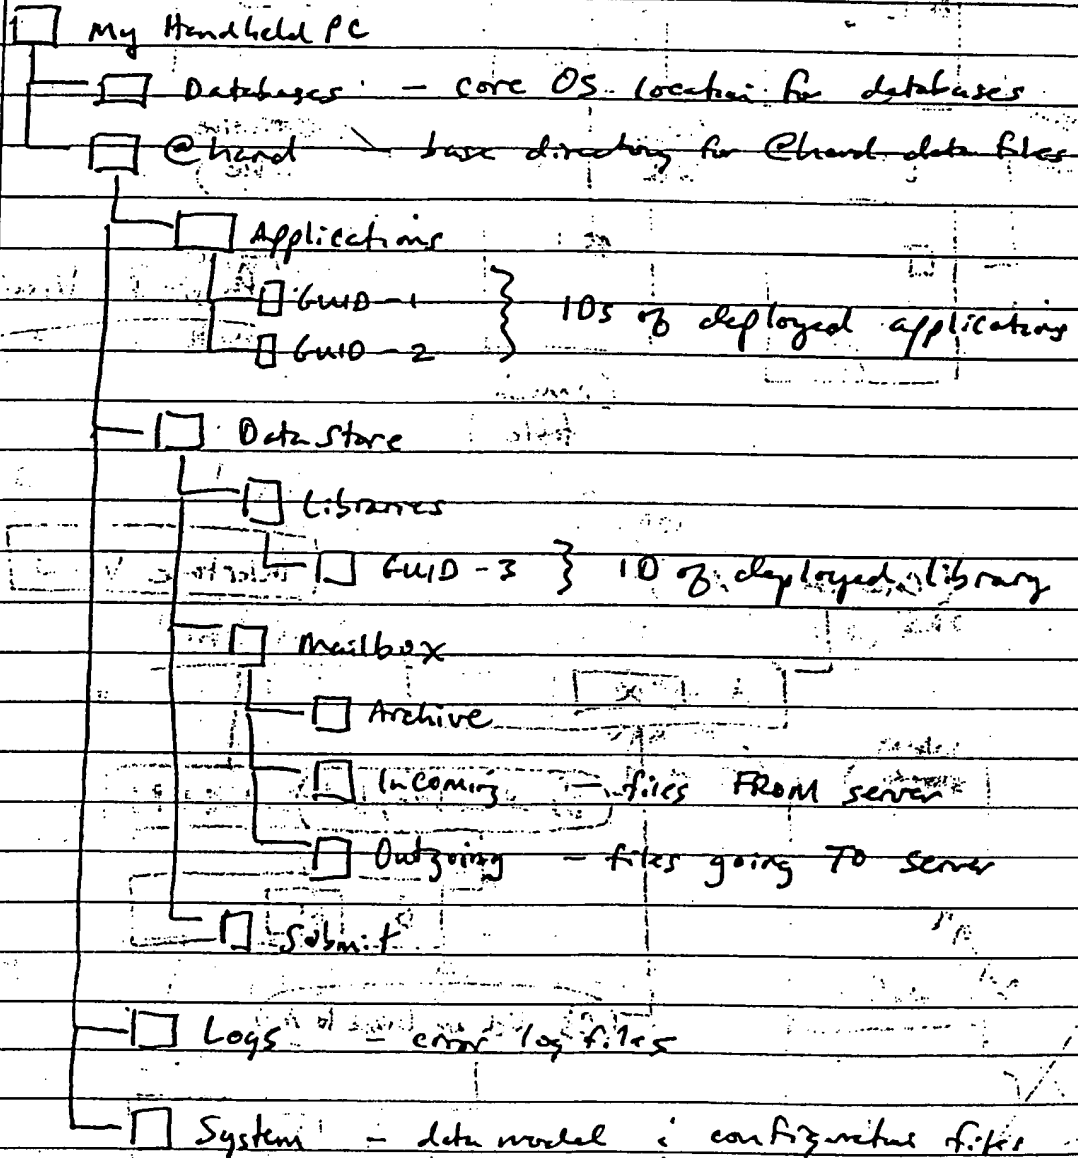 My Handheld PC
Databases - core OS location for databases
@hand - base directory for @hand data files
Applications
GUID-1 } IDs of deployed applications
GUID-2
Data Store
Libraries
GUID-3 } ID of deployed library
Mailbox
Archive
Incoming - files FROM server
Outgoing - files going TO server
Submit
Logs - error log files
System - data model & configuration files